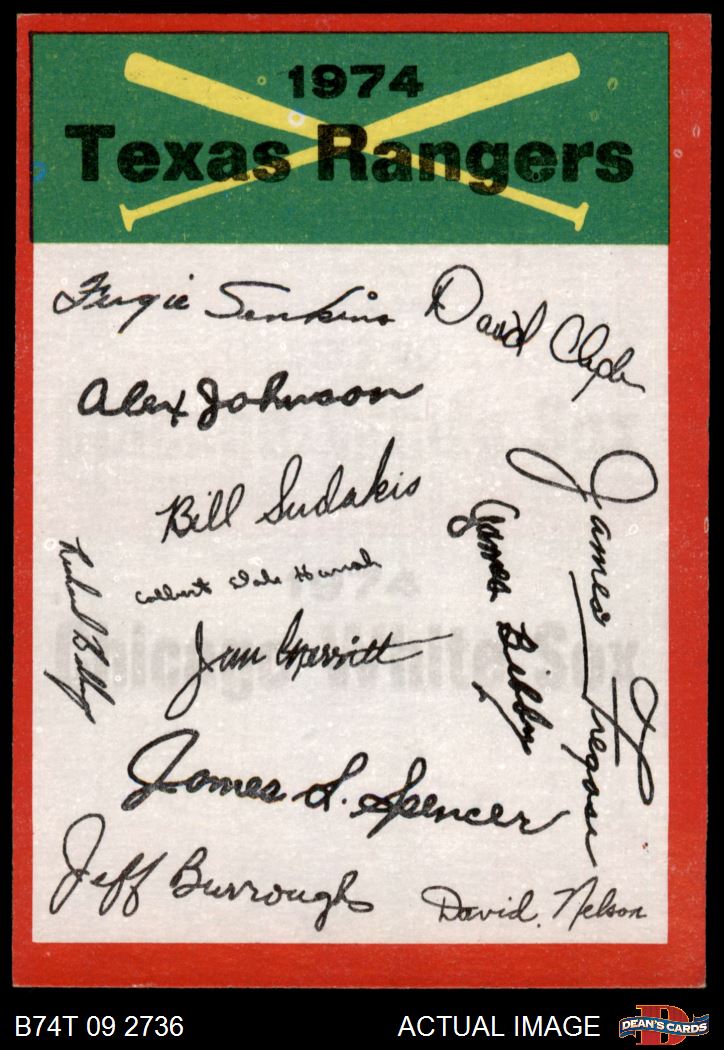 1974
Texas Rangers
Fergie Jenkins
David Clyde
Alex Johnson
Bill Sudakis
James Fregosi
James Bibby
Richard Billings
Jim Merritt
James L. Spencer
Jeff Burroughs
David Nelson
1974
Chicago White Sox
B74T 09 2736
ACTUAL IMAGE
DEAN'S CARDS